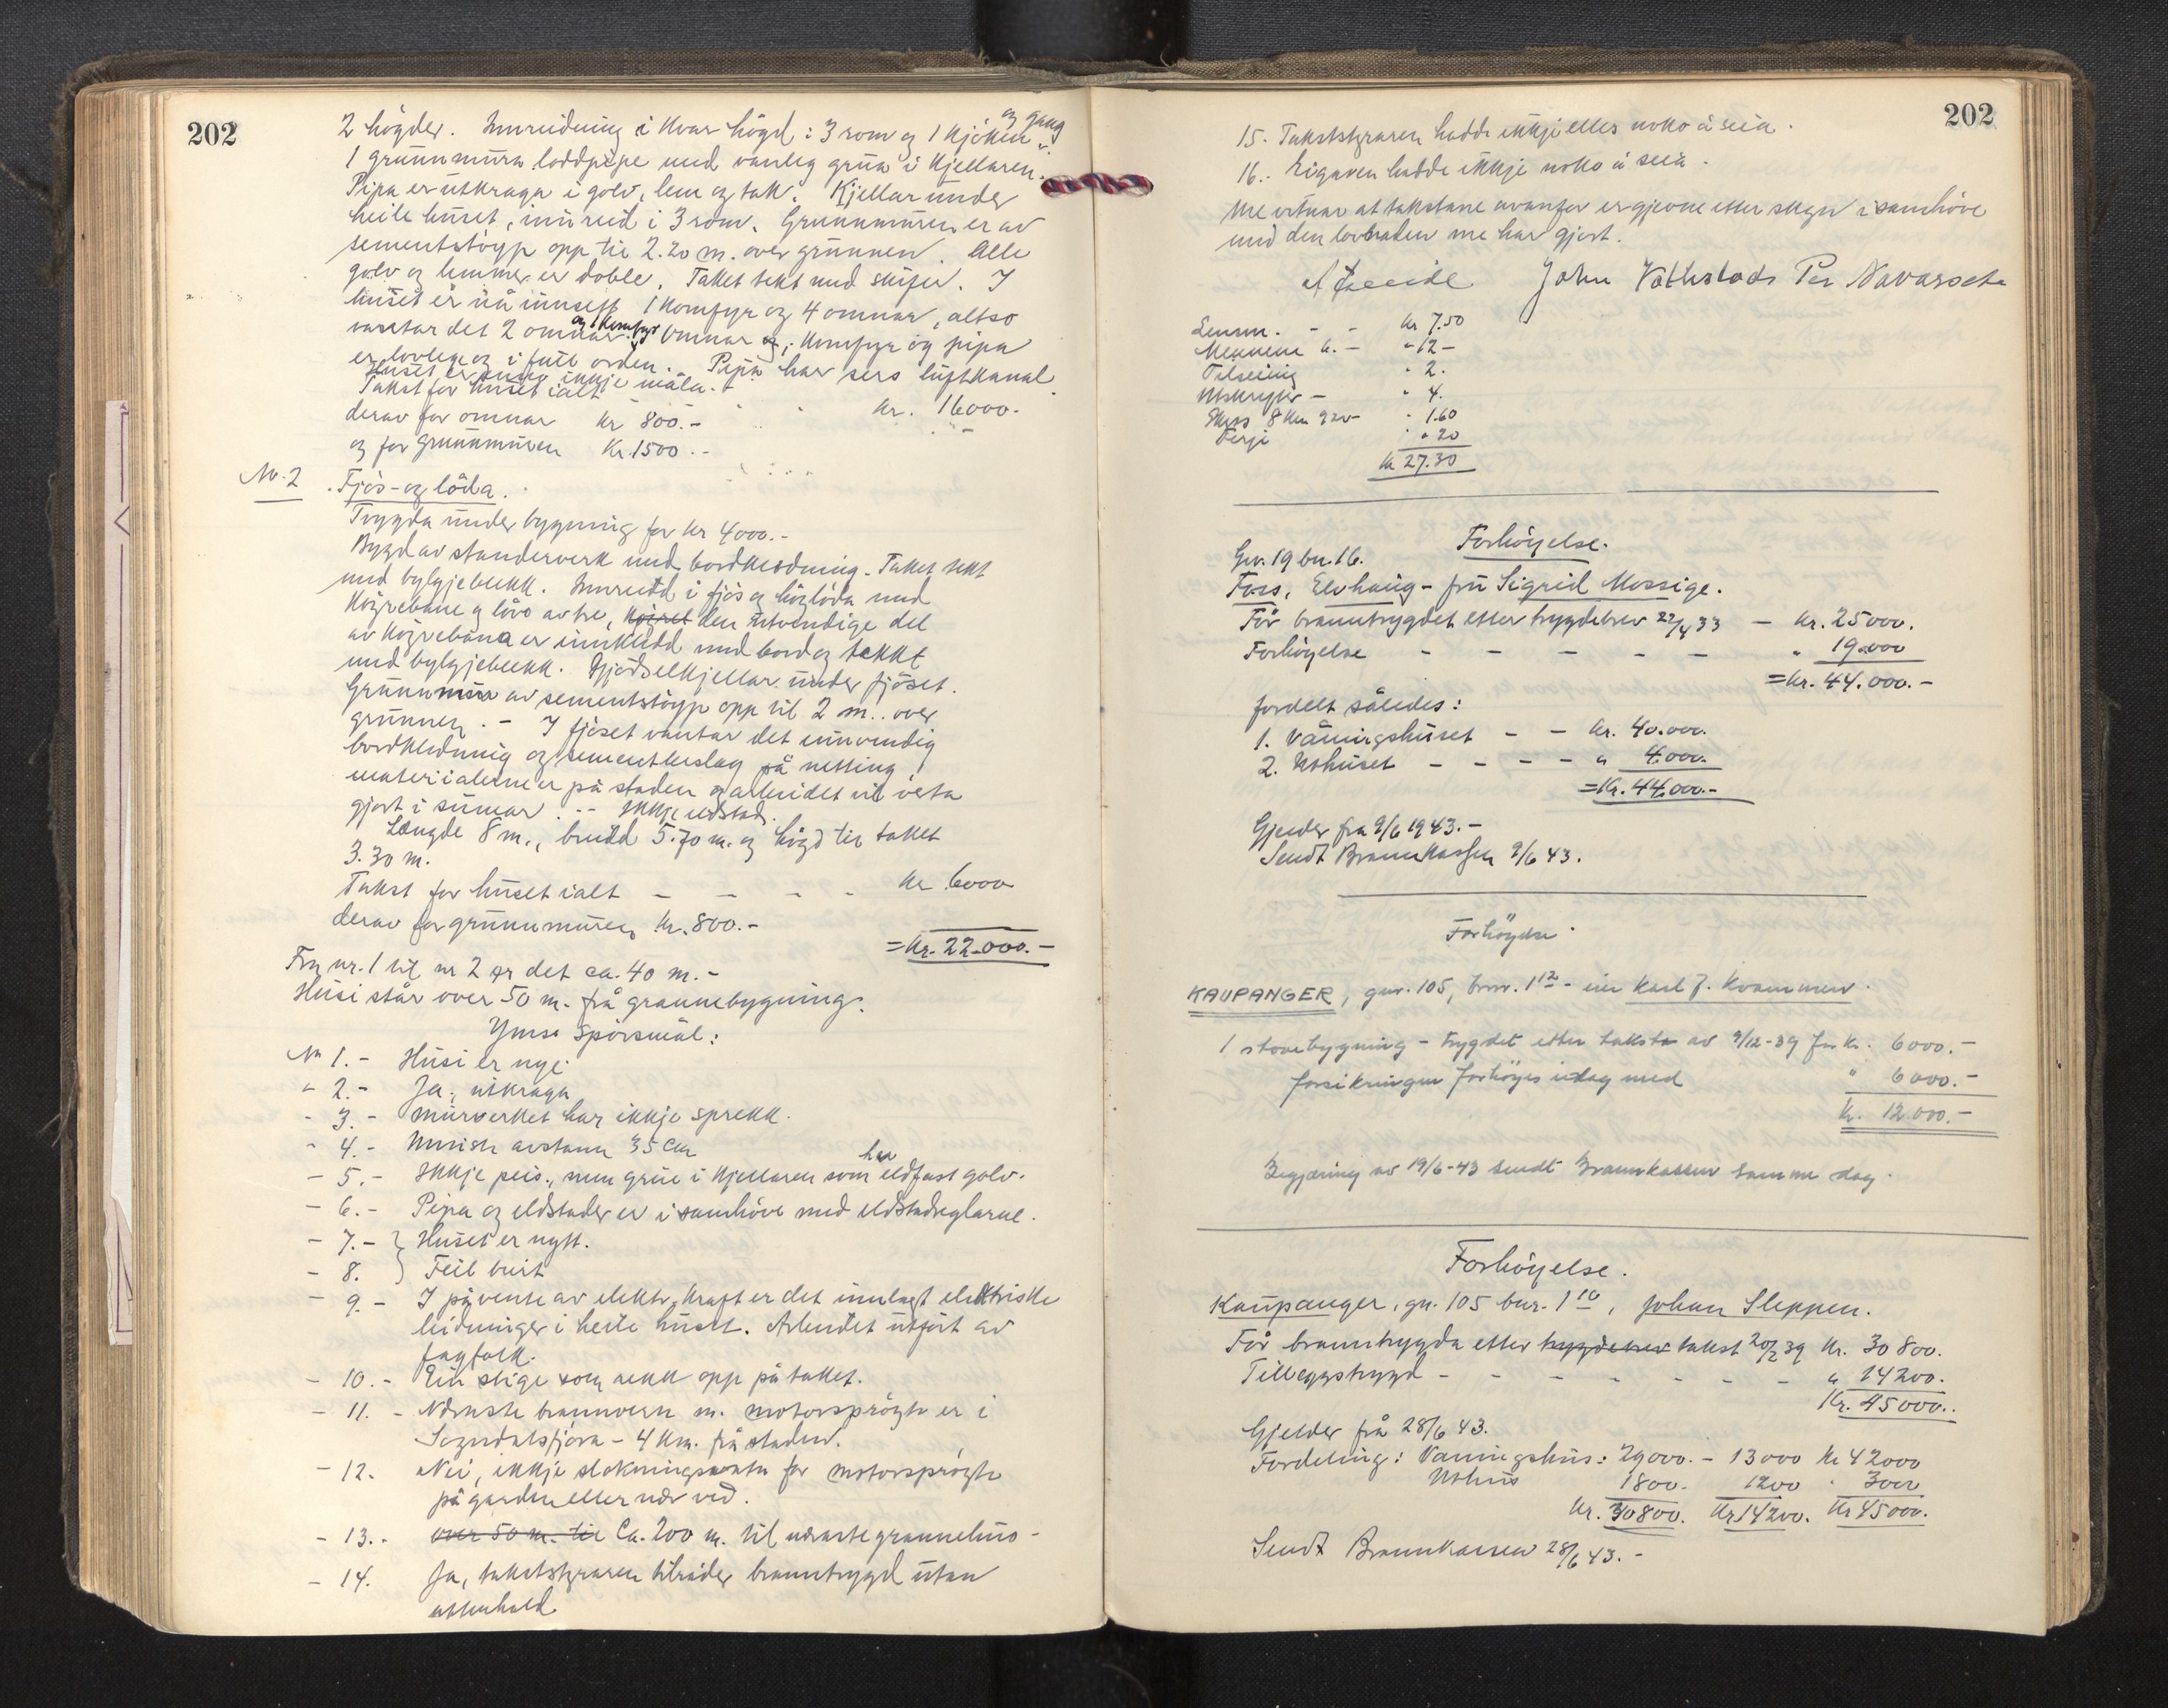 202
2 högder. Innreidning i kvar högd: 3 rom og 1 kjöken og gang
1 grunnmura loddpipe med vanleg grua i kjellaren.
Pipa er utkraga i golv, lem og tak. Kjellar under
heile huset, innreid i 3 rom. Grunnmuren er av
sementstöyp opp til 2.20 m. over grunnen. Alle
golv og lemmer er doble. Taket tekt med skifer. I
huset er nå innsett 1 komfyr og 4 omnar, altso
vantar det 2 omnar og 1 komfyr. Omnar, komfyr og pipa
er lovlege og i full orden. Pipa har sers luftkanal
Huset er enno ikkje måla.
Takst for huset ialt kr. 16000.-
derav for omnar kr 800.-
og for grunnmuren Kr. 1500.-
Nr. 2 Fjös- og löda.
Trygda under bygning for kr 4000.-
Bygd av standerverk med bordkledning. Taket tekt
med bylgjeblekk. Innreidd i fjös og höglöda med
högrebane og lövo av tre, den utvendige del
av högrebana er innkledd med bord og tekkt
med bylgjeblekk. Gjödselkjellar under fjöset.
Grunnmur av sementstöyp opp til 2 m. over
grunnen. - I fjöset vantar det innvendig
bordkledning og sementbeslag på netting,
materialerne er på staden og arbeidet vil verta
gjort i sumar. - Ikkje eldstad.
Længde 8 m., breidd 5.70 m. og högd til taket
3.30 m.
Takst for huset ialt - - - - kr 6000
derav for grunnmuren kr. 800.-
= Kr. 22.000.-
Fra nr. 1 til nr 2 er det ca. 40 m.-
Husi står over 50 m. frå grannebygning.
Ymse spörsmål:
Nr 1.- Husi er nye.
" 2.- Ja, utkraga
- 3.- Murverket har ikkje sprekk.
- 4.- Minste avstann 35 cm
- 5.- Ikkje peis, men grue i kjellaren som har eldfast golv.
- 6.- Pipa og eldstader er i samhöve med eldstadreglarne.
- 7.- } Huset er nytt.
- 8. } Feil burt
- 9.- I påvente av elektr. kraft er det innlagt elektriske
leidninger i heile huset. Arbeidet utfört av
fagfolk.
- 10.- Ein stige som rekk opp på taket.
- 11.- Nærmaste brannvern m. motorspröyte er i
Sogndalsfjöra - 4 km. frå staden.
- 12. Nei, ikkje slokningsvatn for motorspröyte
på garden eller nær ved.
- 13.- over 50 m. til Ca. 200 m. til næraste grannehus -
- 14. Ja, takststyraren tilråder branntrygd utan
atterhald
202
15. Takststyraren hadde ikkje elles noko å seia.
16.- Eigaren hadde ikkje noko å seia.
Me vitnar at takstane ovanfor er gjevne etter skyn i samhöve
med den lovnaden me har gjort.
John Vathstads Per Navarsete
Lensm. - - kr 7.50
Mennene 6.- " 12-
Tilseiing " 2.
Utskrifter - " 4.
Skyss 8 km " 1.60
Ferje " " 20
kr 27.30
Forhöyelse.
Gnr. 19 bnr. 16.
Foss, Elvhaug - fru Sigrid Mossige.
För branntrygdet etter trygdebrev 22/4 33 - kr. 25000.
Forhöyelse - - - - - " 19.000
= kr. 44.000.-
fordelt således:
1. Våningshuset - - kr. 40.000.
2. Uthuset - - - - " 4.000.
= Kr. 44.000.-
Gjelder fra 9/6 1943.-
Sendt Brannkassen 9/6 43.
Forhöyelse.
KAUPANGER, gnr. 105, bnr. 1 12 - eier Karl J. Kvammen.
1 stovebygning - trygdet etter takst av 9/12-39 for kr. 6000.-
forsikringen forhöyes idag med " 6000.-
Kr. 12.000.-
Begjæring av 19/6-43 sendt Brannkassen samme dag.
Forhöyelse.
Kaupanger, gnr. 105 bnr. 1 10, Johan Sleppen.
För branntrygda etter trygdebrev takst 20/2 39 kr. 30 800.
Tilleggstrygd - - - - - - - " 14200.
Kr. 45000.-
Gjelder frå 28/6 43.
Fordeling: Vaningshus: 29000.- 13000 Kr 42000
Uthus 1800. 1200 " 3000
Kr. 30800. Kr 14200. Kr 45000.
Sendt Brannkassen 28/6 43.-